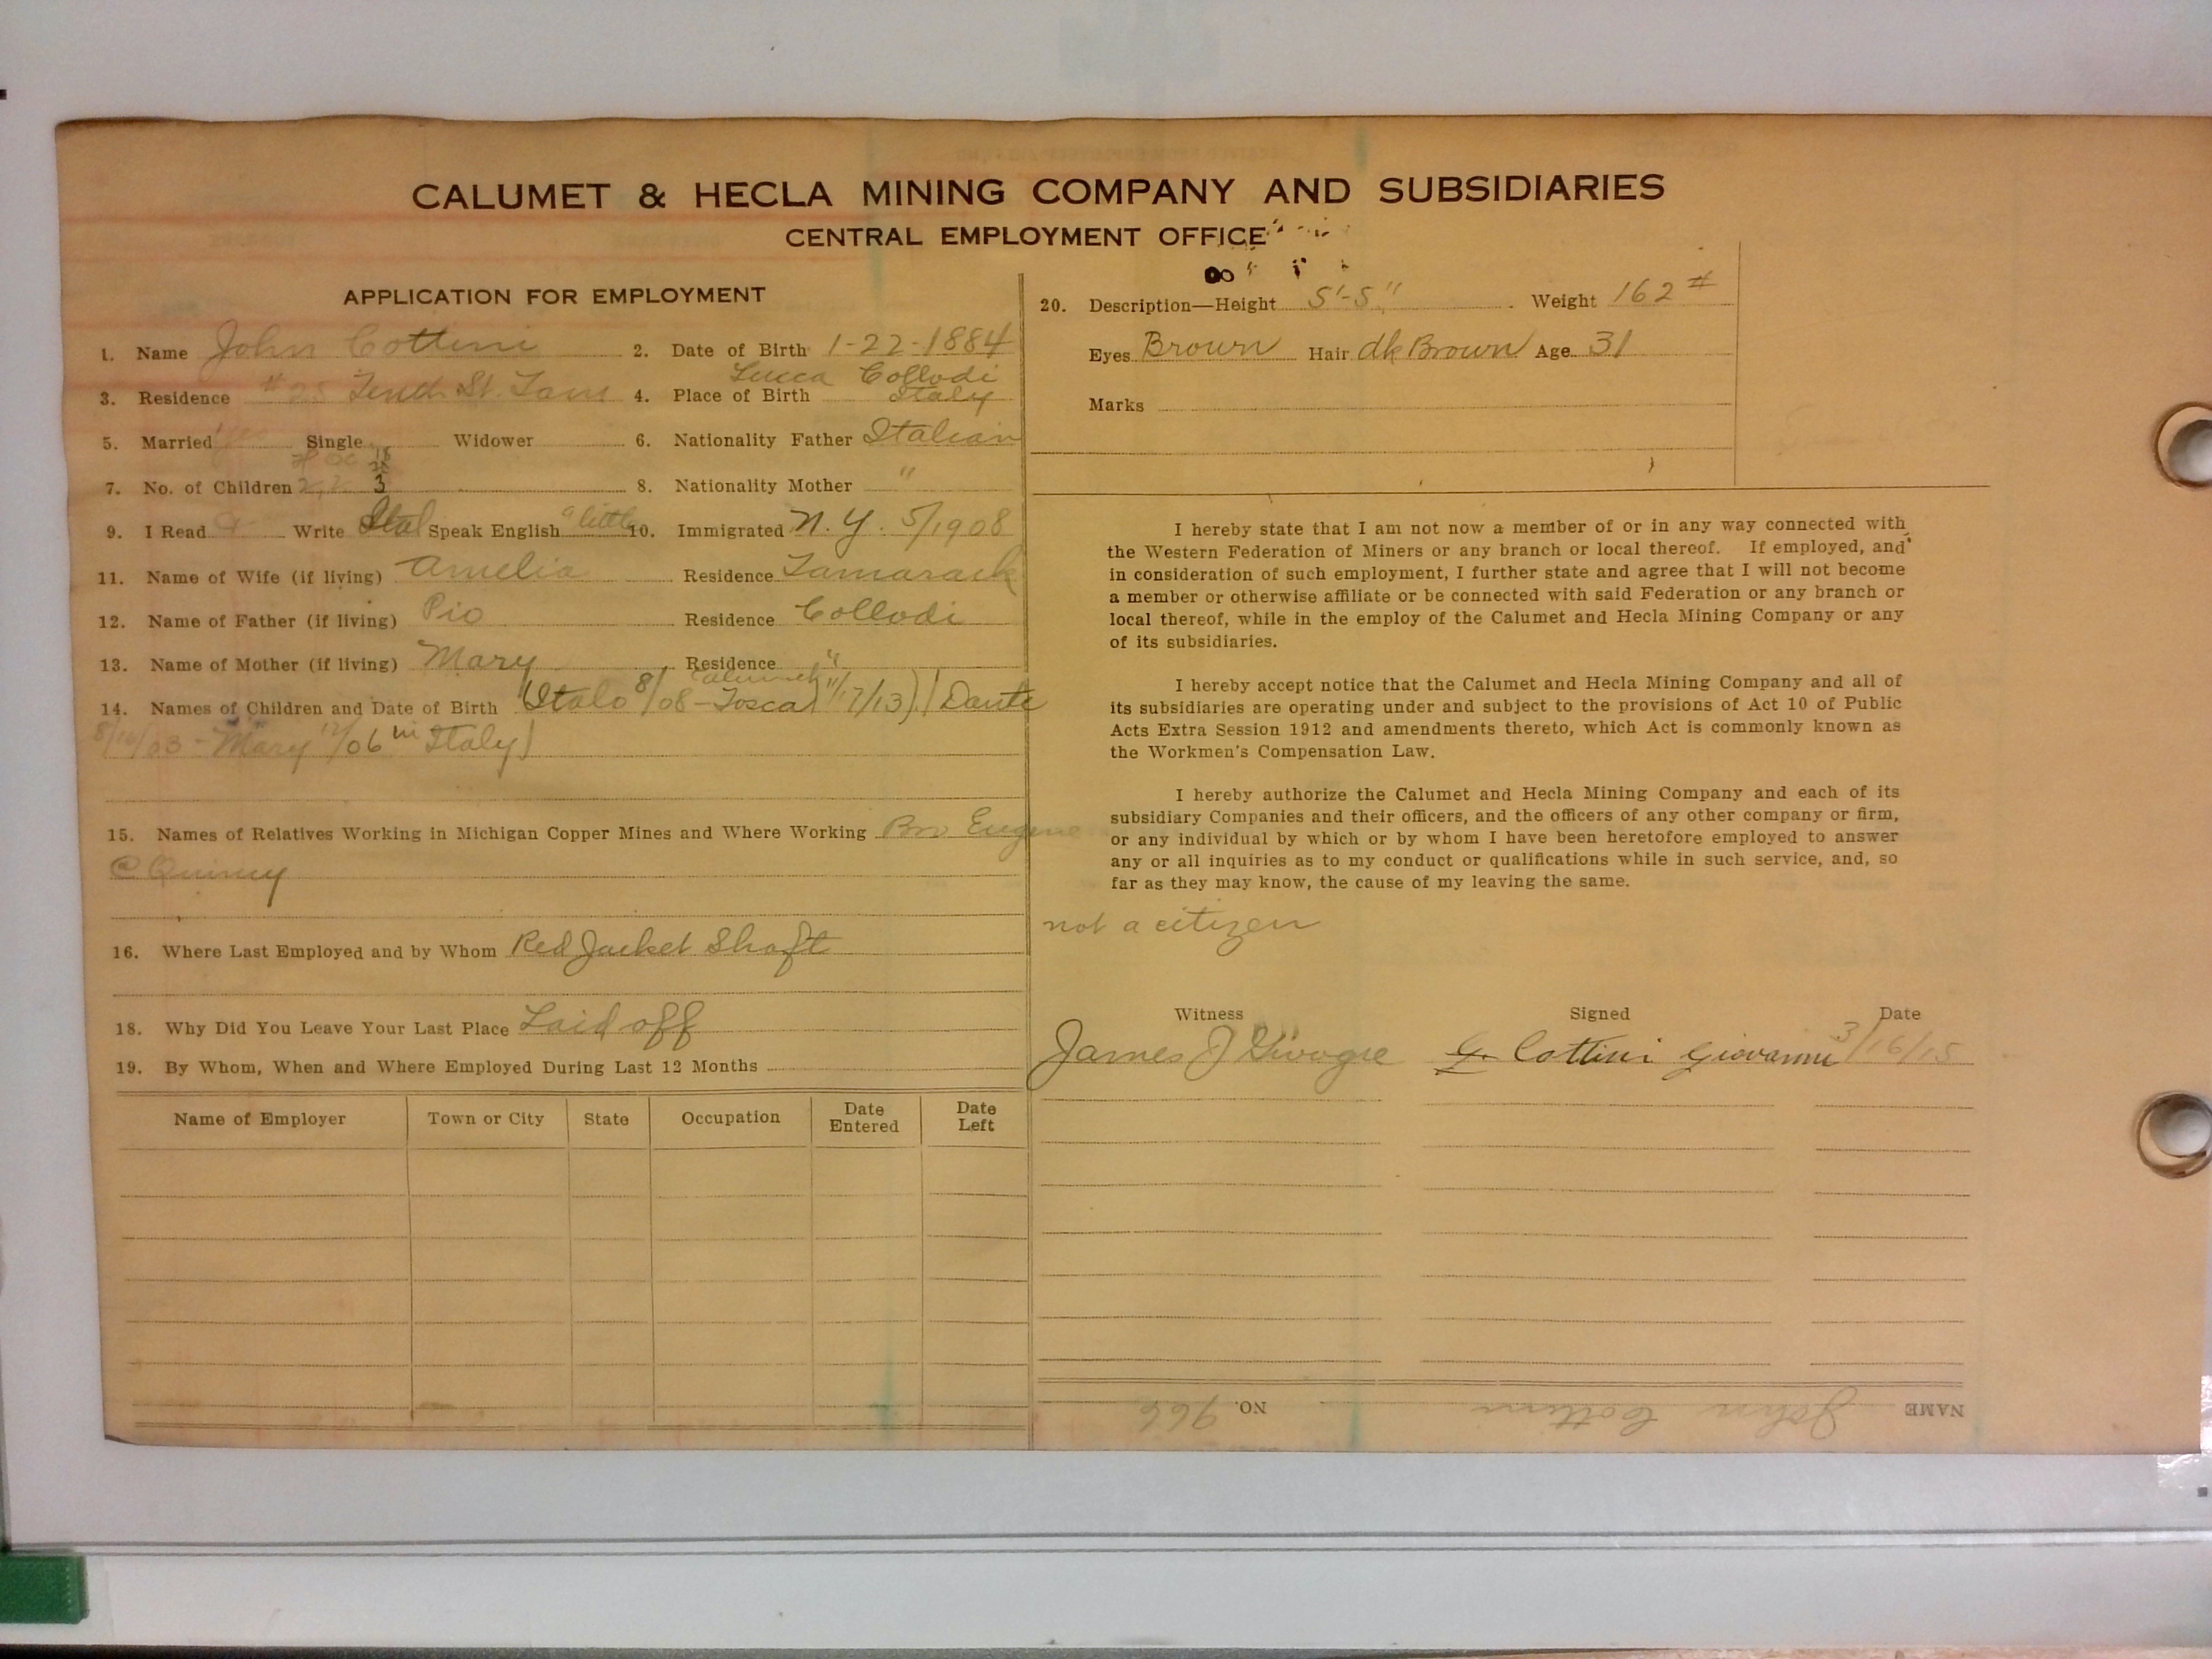 CALUMET & HECLA MINING COMPANY AND SUBSIDIARIES
CENTRAL EMPLOYMENT OFFICE
APPLICATION FOR EMPLOYMENT
1. Name John Cottini 2. Date of Birth 1-22-1884
Lucca Collodi
3. Residence Tenth St. Tam 4. Place of Birth Italy
5. Married Single Widower 6. Nationality Father Italian
7. No. of Children 3 8. Nationality Mother "
9. I Read Write Ital Speak English a little 10. Immigrated N. Y. 5/1908
11. Name of Wife (if living) Amelia Residence Tamarack
12. Name of Father (if living) Pio Residence Collodi
13. Name of Mother (if living) Mary Residence "
14. Names of Children and Date of Birth (Italo 8/08 - Tosca 11/17/13) (Dante
8/16/03 - Mary 12/06 in Italy)
15. Names of Relatives Working in Michigan Copper Mines and Where Working Bro Eugene
@ Quincy
16. Where Last Employed and by Whom Red Jacket Shaft
18. Why Did You Leave Your Last Place Laid off
19. By Whom, When and Where Employed During Last 12 Months
Name of Employer Town or City State Occupation Date Entered Date Left
20. Description—Height 5'-5" Weight 162 #
Eyes Brown Hair dk Brown Age 31
Marks
I hereby state that I am not now a member of or in any way connected with
the Western Federation of Miners or any branch or local thereof. If employed, and
in consideration of such employment, I further state and agree that I will not become
a member or otherwise affiliate or be connected with said Federation or any branch or
local thereof, while in the employ of the Calumet and Hecla Mining Company or any
of its subsidiaries.
I hereby accept notice that the Calumet and Hecla Mining Company and all of
its subsidiaries are operating under and subject to the provisions of Act 10 of Public
Acts Extra Session 1912 and amendments thereto, which Act is commonly known as
the Workmen's Compensation Law.
I hereby authorize the Calumet and Hecla Mining Company and each of its
subsidiary Companies and their officers, and the officers of any other company or firm,
or any individual by which or by whom I have been heretofore employed to answer
any or all inquiries as to my conduct or qualifications while in such service, and, so
far as they may know, the cause of my leaving the same.
not a citizen
Witness Signed Date
James J Cottini Giovanni 3/16/15
NAME John Cottini NO. 966